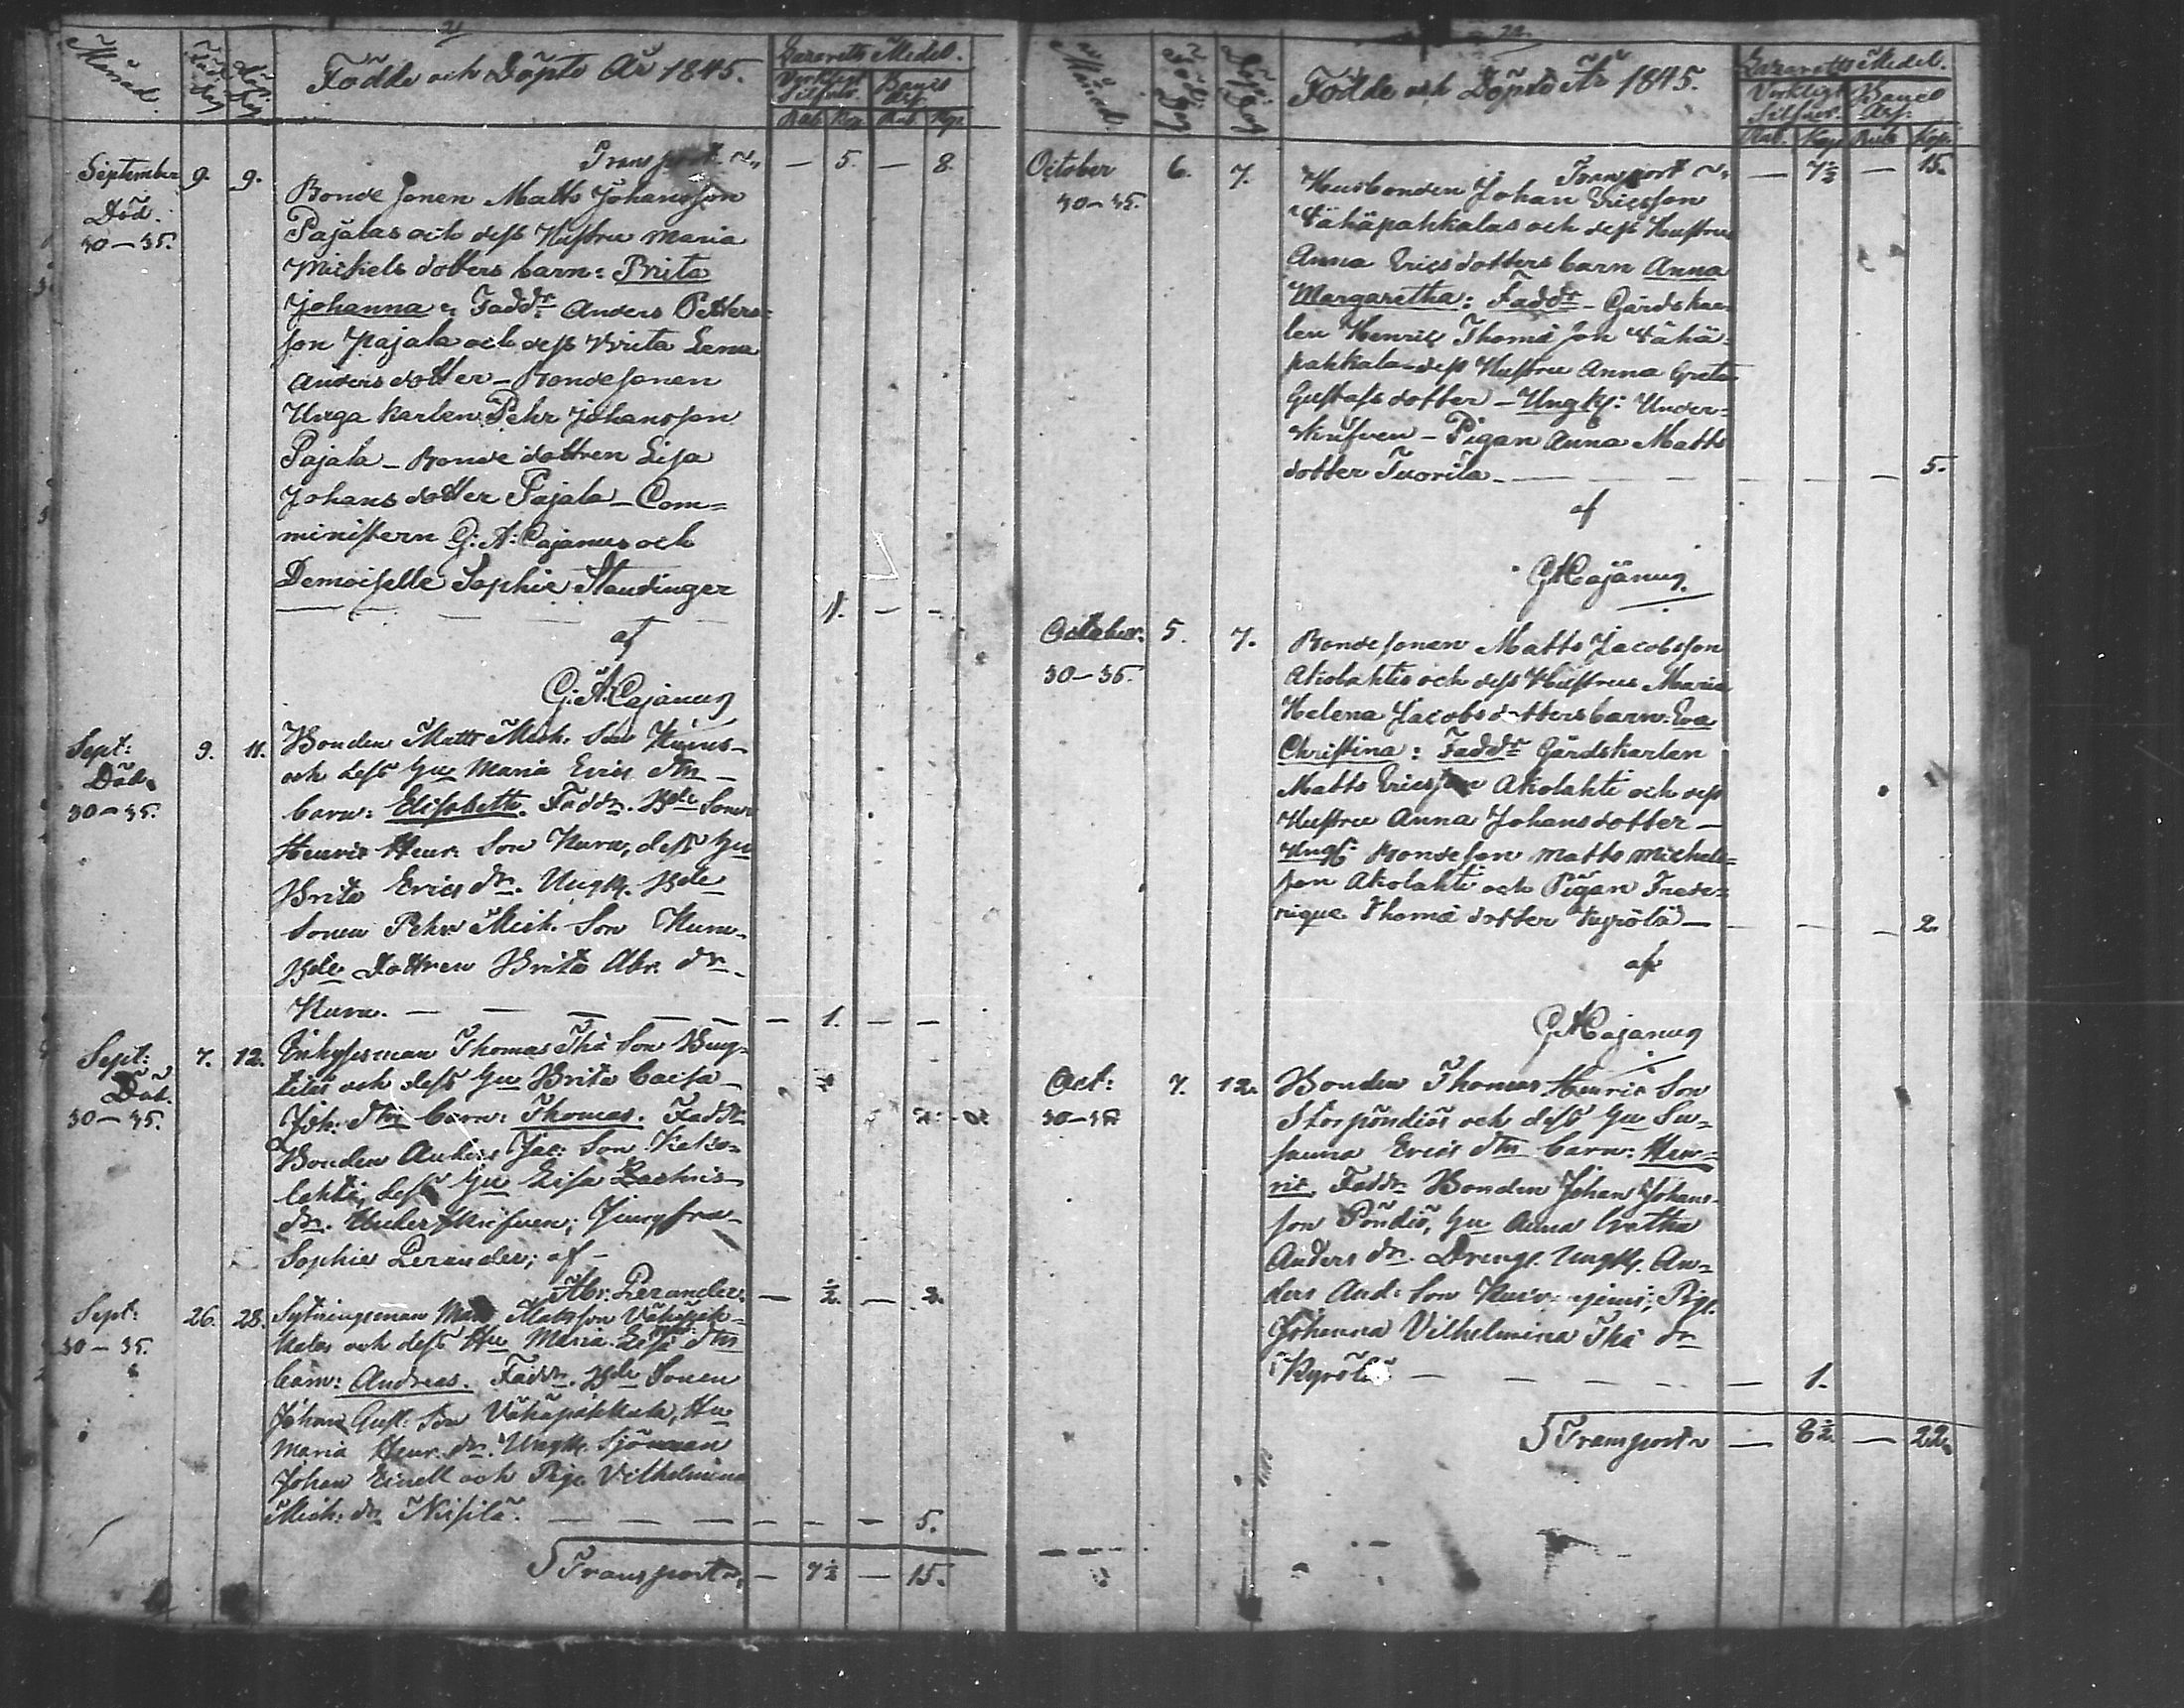 21
Månad. Född dag Döp. dag Födde och Döpte År 1845. Lazaretts Medel.
Verkligt Silfver. Banco Ass.
Rub. Kop. Rub. Kop.
Transport ~,, — 5. — 8.
September 9. 9. Bonde sonen Matts Johansson
Död. Pajalas och dess Hustru Maria
30–35. Michels dotters barn: Brita
Johanna: Faddr Anders Petters=
son Pajala och dess Brita Lena
Anders dotter – Bondesonen
Unga karlen Pehr Johansson
Pajala – Bonde dottren Lisa
Johans dotter Pajala – Com=
ministern G: A: Cajanus och
Demoiselle Sophie Staudinger
— — — 1. — -
af
G: A: Cajanus
Sept: 9. 11. Bonden Matts Mich. Son
Död. och dess Hu Maria Erics dtrs
30–35. barn: Elisabeth. Faddr. Bde Sonen
Henric Henr. Son dess Hu
Brita Erics dr. Ungk. Bde
Sonen Pehr Mich. Son
Bde Dottren Brita Abr. dr.
— — — — — 1. — —
Sept: 7. 12. Inhysesman Thomas Thå Son
Död. och dess Hu Brita Caisa
30–35. Joh: dtrs barn: Thomas. Faddr
Bonden Anders Jac: Son
lahti, dess Hu Lisa Zachris
dr. Underskrifven; Jungfru
Sophie Perander; af –
Abr: Perander. — ½. — 2.
Sept: 26. 28. Sytningsman Matts Mattsson Vähäpah-
30–35. kalas och dess Hu Maria Lisa dtrs
barn: Andreas. Faddr. Bde Sonen
Johan Gust: Son Vähäpahkala, Hu
Maria Henr. dr. Ungk. Sjöman
Johan och Pig. Vilhelmina
Mich: dr Nisilä. — — — — — 5.
Transport ~, — 7½ — 15.
22.
Månad. Född Dag Döp. Dag Födde och Döpte År 1845. Lazaretts Medel.
Verkligt Silfver. Banco Ass:
Rub. Kop. Rub. Kop.
Transport ~, — 7½ — 15.
October 6. 7. Husbonden Johan Ericsson
30–35. Vähäpahkalas och dess Hustru
Anna Erics dotters barn Anna
Margaretha: Faddr – Gårdskar-
len Henric Thomä son Vähä-
pahkala – dess Hustru Anna Greta
Gustafs dotter – Ungk: Under=
skrifven – Pigan Anna Matts
dotter Tuorila — — — — 5.
af
GACajanus.
October. 5. 7. Bondesonen Matts Jacobsson
30–35. Akolahtis och dess Hustrus Maria
Helena Jacobs dotters barn: Eva
Christina: Faddr Gårdskarlen
Matts Ericsson Akolahti och dess
Hustru Anna Johansdotter –
Ungk: Bondeson Matts Michels=
son Akolahti och Pigan Frede=
rique Thomä dotter — — — 2.
af
GACajanus
Oct: 7. 12. Bonden Thomas Henric Son
30–35 Storpöndiös och dess Hu Su-
sanna Erics dtrs barn: Hen-
ric. Faddr Bonden Johan Johans-
son Pöndiö, Hu Anna Gretha
Anders dr. Dreng. Ungk. An-
ders And: Son Pig.
Johanna Vilhelmina Thå dr
Kyrölä — — — — — 1.
Transport ~ — 8½. — 22.